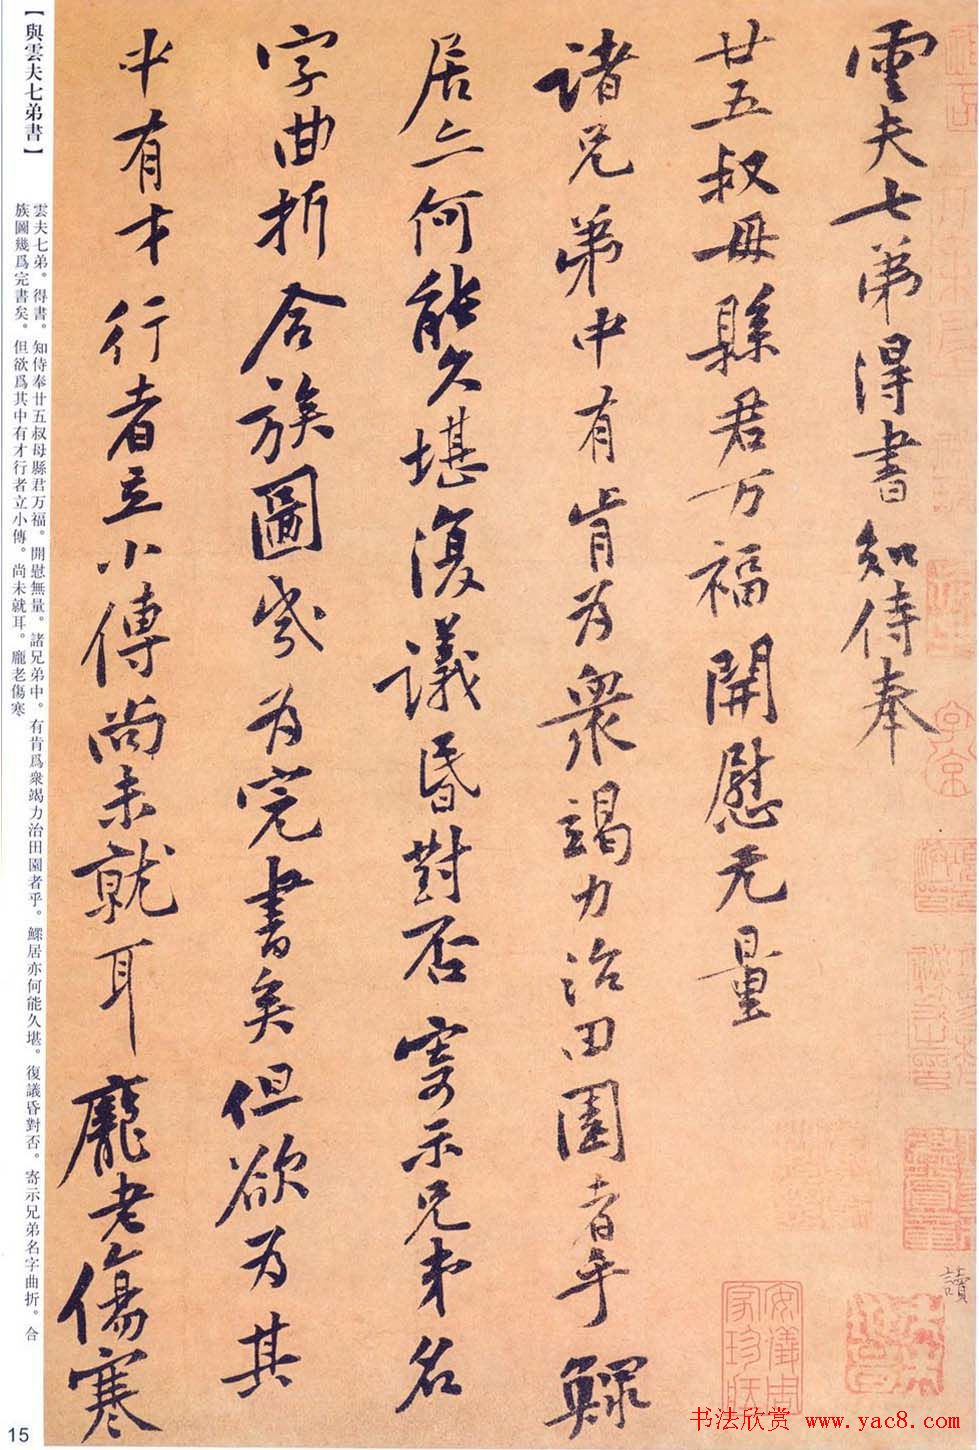 雲夫七弟得書知侍奉
廿五叔母縣君万福開慰无量
諸兄弟中有肯为衆竭力治田園者乎鰥
居亦何能久堪復議昏對否寄示兄弟名
字曲折合族圖幾为完書矣但欲为其
中有才行者立小傳尚未就耳龐老傷寒
讀
安儀周
家珍藏
【與雲夫七弟書】
雲夫七弟。得書。知侍奉廿五叔母縣君万福。開慰無量。諸兄弟中。有肯爲衆竭力治田園者乎。鰥居亦何能久堪。復議昏對否。寄示兄弟名字曲折。合
族圖幾爲完書矣。但欲爲其中有才行者立小傳。尚未就耳。龐老傷寒
15
书法欣赏 www.yac8.com